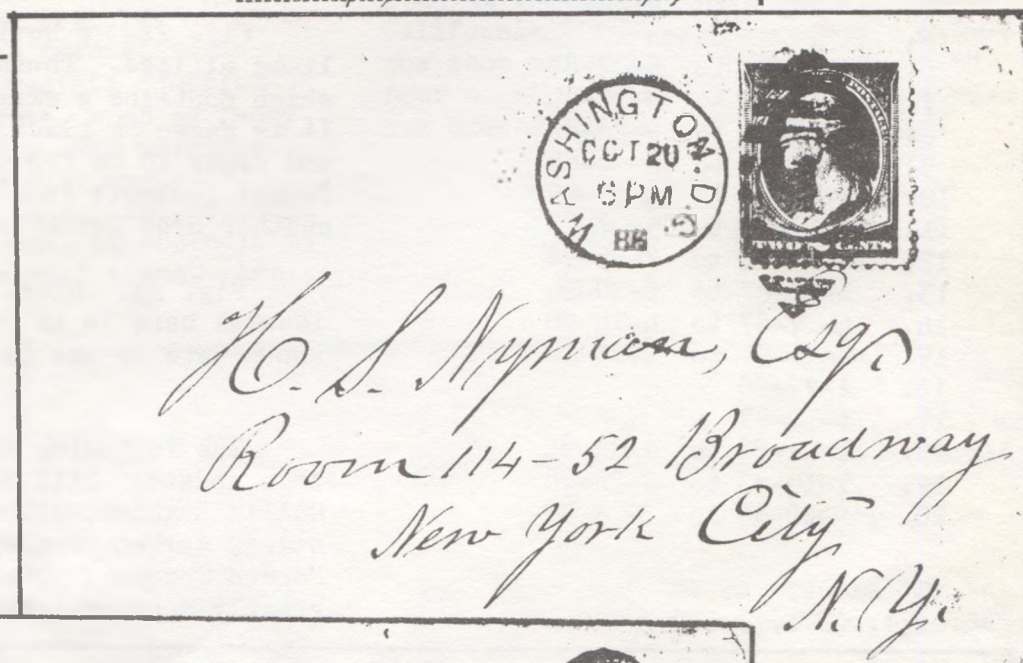 WASHINGTON. D.C.
OCT 20
6 PM
86
POSTAGE
TWO CENTS
H. S. Nyman, Esq.
Room 114 - 52 Broadway
New York City
N. Y.